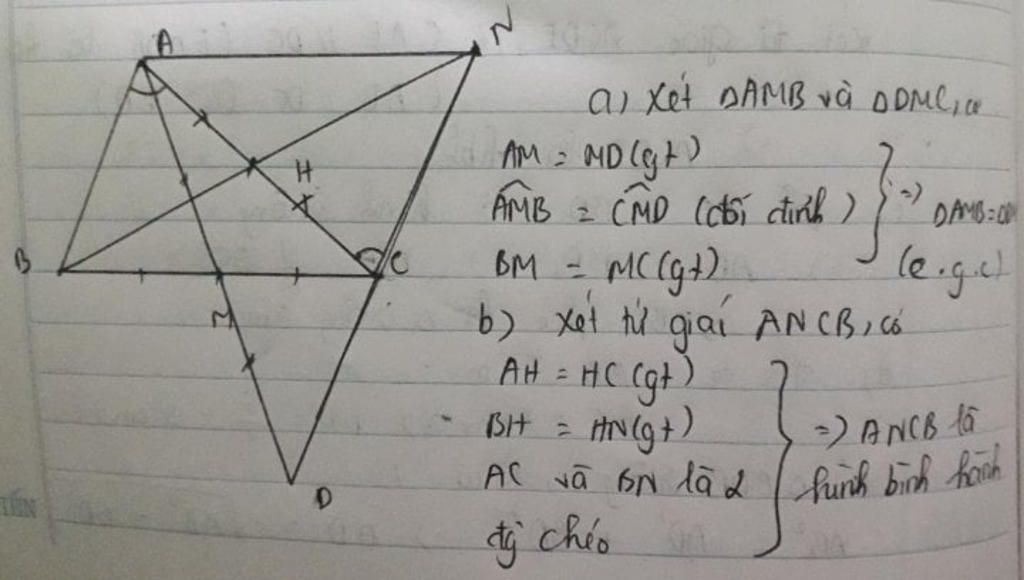 A
N
H
B
C
M
D
a) Xét ΔAMB và ΔDMC, có
AM = MD (gt)
AMB = CMD (đối đỉnh)
BM = MC (gt)
=> ΔAMB =
(c.g.c)
b) Xét tứ giái ANCB, có
AH = HC (gt)
BH = HN (gt)
AC và BN là 2
đg chéo
=> ANCB là
hình bình hành